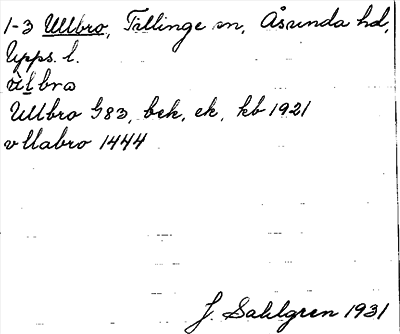 1-3 Ullbro, Tillinge sn, Åsunda hd,
Upps. l.
ưl bro
Ullbro G83, bek, ek, kb 1921
v llabro 1444
J. Sahlgren 1931